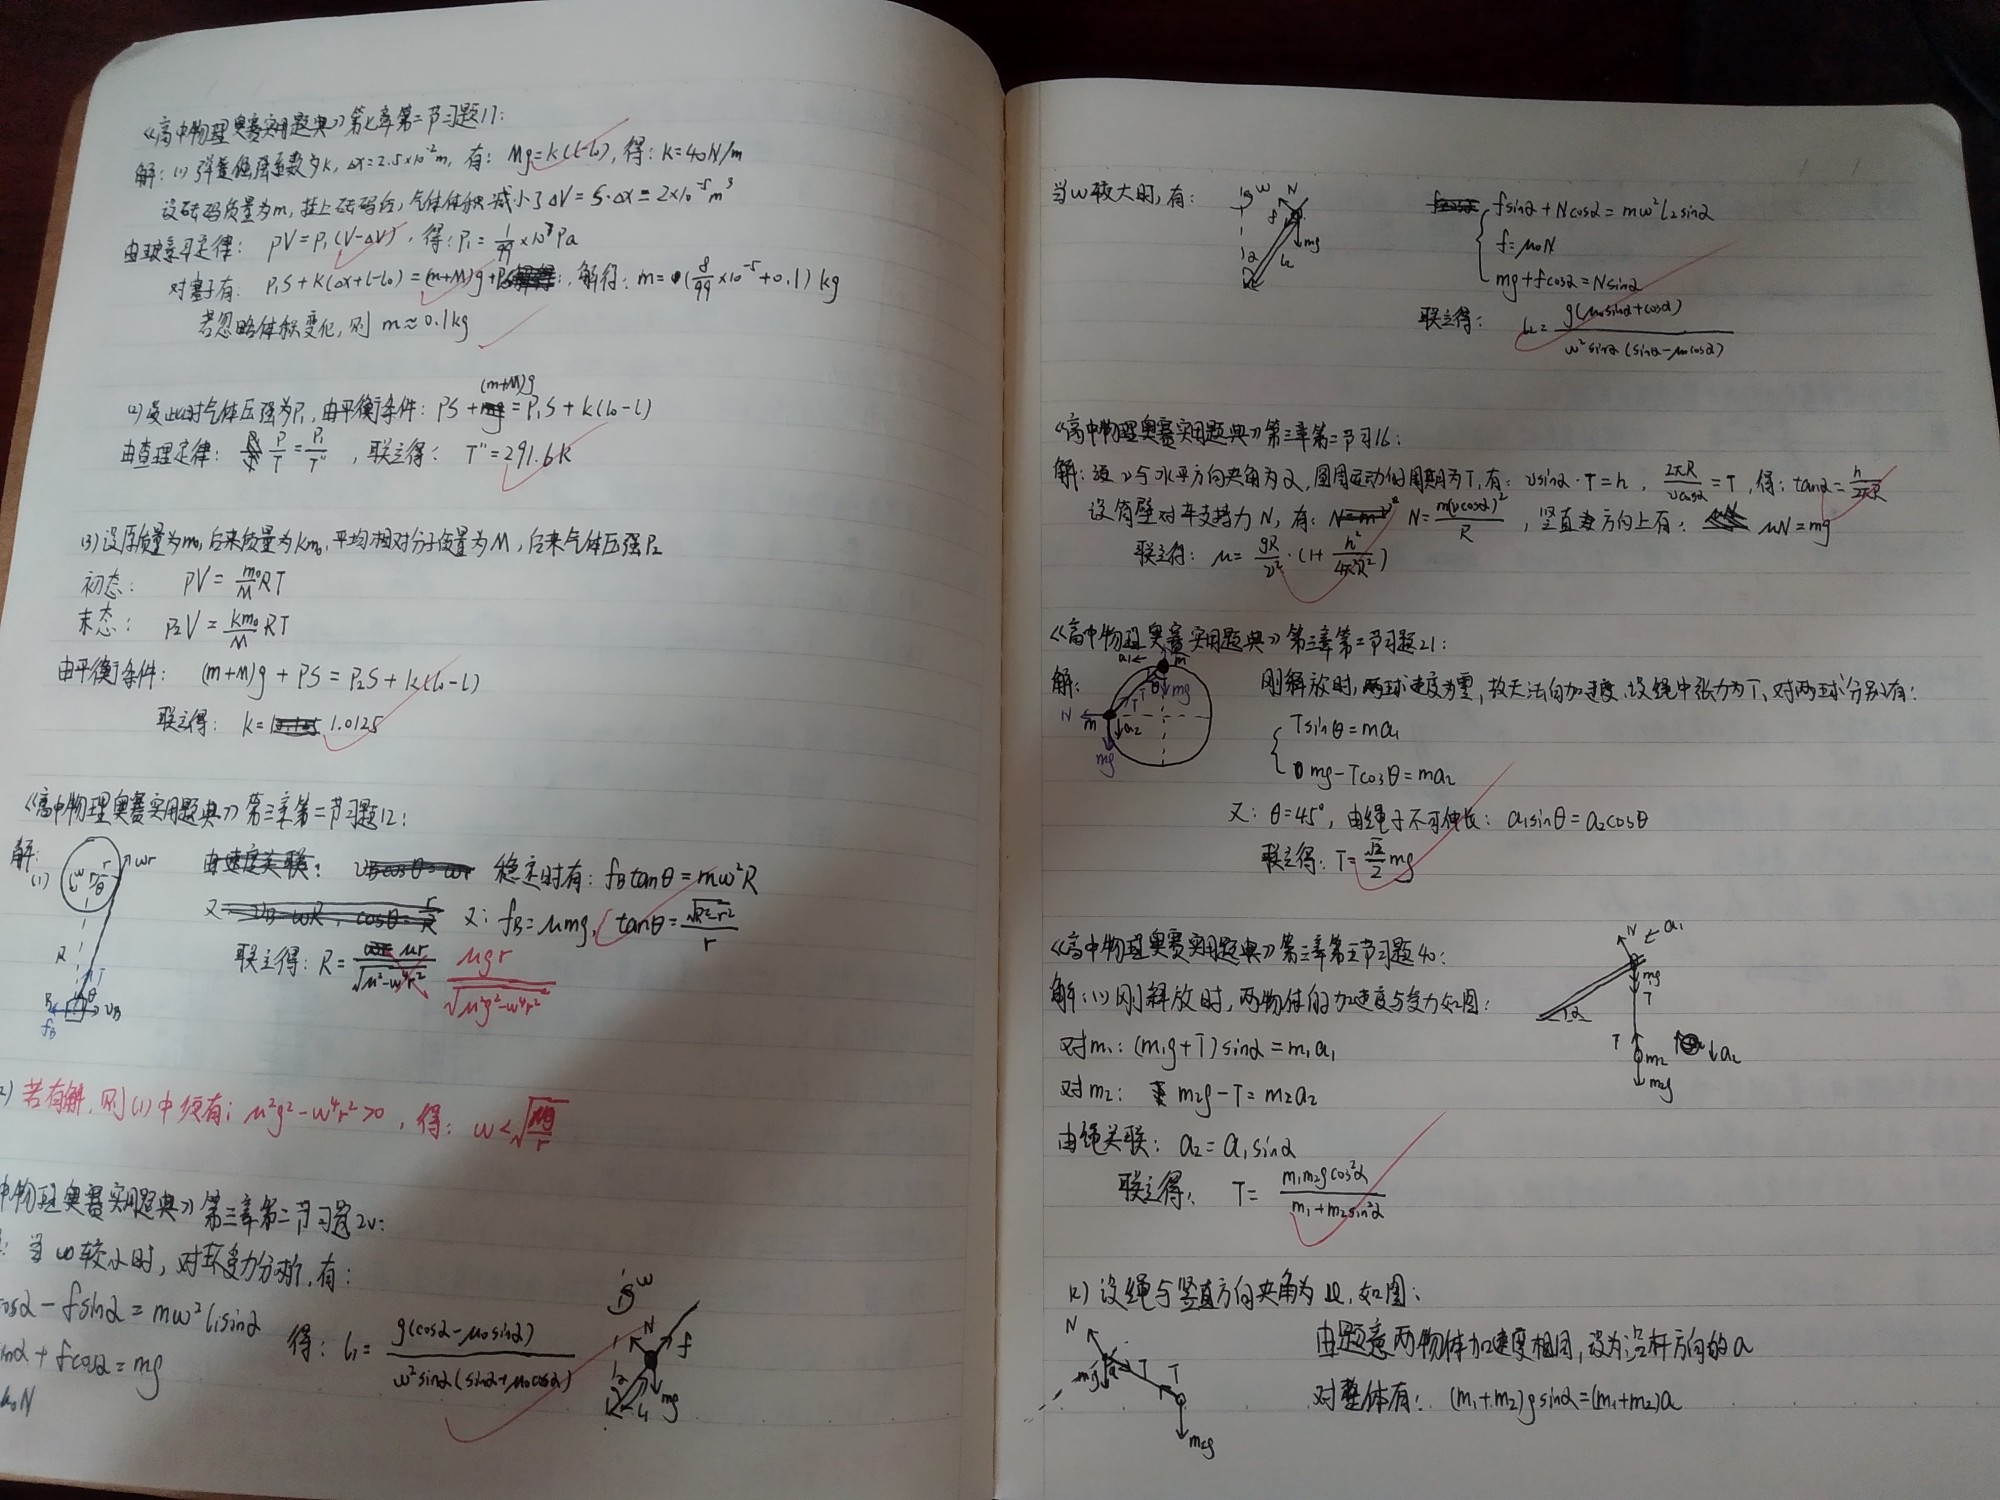 《高中物理奥赛实用题典》第七章第二节习题17:
解:(1) 弹簧倔强系数为k, Δx=2.5×10⁻²m, 有: Mg=k(l-l₀), 得: k=40N/m
设砝码质量为m, 挂上砝码后, 气体体积减小了ΔV=S·Δx=2×10⁻⁵m³
由玻意耳定律: PV=P₁(V-ΔV), 得: P₁=1/99×10⁷Pa
对塞子有: P₁S+k(Δx+l-l₀)=(m+M)g+P, 解得: m=(8/99×10⁻⁵+0.1)kg
若忽略体积变化, 则 m≈0.1kg
(2) 设此时气体压强为P₁, 由平衡条件: PS+(m+M)g=P₁S+k(l₀-l)
由查理定律: P/T=P₁/T'', 联立得: T''=291.6K
(3) 设原质量为m₀, 后来质量为km₀, 平均相对分子质量为M, 后来气体压强P₂
初态: PV=m₀/M RT
末态: P₂V=km₀/M RT
由平衡条件: (m+M)g+PS=P₂S+k(l₀-l)
联立得: k=1.0125
《高中物理奥赛实用题典》第三章第二节习题12:
解:
(1)
ω r θ ωr R T B θ v_B f_B
由速度关联: v_B cosθ=ωr 稳定时有: f_B tanθ=mω²R
又: v_B=ωR, cosθ=r/R 又: f_B=μmg, tanθ=√(R²-r²)/r
联立得: R=μr/√(μ²-ω⁴r²) μgr/√(μ²g²-ω⁴r²)
2) 若有解, 则(1)中须有: μ²g²-ω⁴r²>0, 得: ω<√(μg/r)
中物理奥赛实用题典》第三章第二节习题20:
: 当ω较小时, 对环受力分析, 有:
cosα-fsinα=mω²l₁sinα
sinα+fcosα=mg
μ₀N
得: l₁=g(cosα-μ₀sinα)/ω²sinα(sinα+μ₀cosα)
ω N f α l₁ mg
当ω较大时, 有:
ω N f mg α l₂
fsinα+Ncosα=mω²l₂sinα
f=μ₀N
mg+fcosα=Nsinα
联立得: l₂=g(μ₀sinα+cosα)/ω²sinα(sinα-μ₀cosα)
《高中物理奥赛实用题典》第三章第二节习16:
解: 设v与水平方向夹角为α, 圆周运动的周期为T, 有: vsinα·T=h, 2πR/vcosα=T, 得: tanα=h/2πR
设筒壁对车支持力N, 有: N=m(vcosα)²/R, 竖直方向上有: μN=mg
联立得: μ=gR/v²·(1+h²/4π²R²)
《高中物理奥赛实用题典》第三章第二节习题21:
解:
a₁ m θ T mg T N m a₂ mg
刚释放时, 两球速度为零, 故无法向加速度. 设绳中张力为T, 对两球分别有:
Tsinθ=ma₁
mg-Tcosθ=ma₂
又: θ=45°, 由绳子不可伸长: a₁sinθ=a₂cosθ
联立得: T=√2/2 mg
《高中物理奥赛实用题典》第三章第三节习题40:
解:(1) 刚释放时, 两物体的加速度与受力如图:
N a₁ mg T α T m₂ m₂g a₂
对m₁: (m₁g+T)sinα=m₁a₁
对m₂: m₂g-T=m₂a₂
由绳关联: a₂=a₁sinα
联立得: T=m₁m₂gcos²α/m₁+m₂sin²α
(2) 设绳与竖直方向夹角为, 如图:
N m₁g T T m₂g
由题意两物体加速度相同, 设为沿杆方向的a
对整体有: (m₁+m₂)gsinα=(m₁+m₂)a